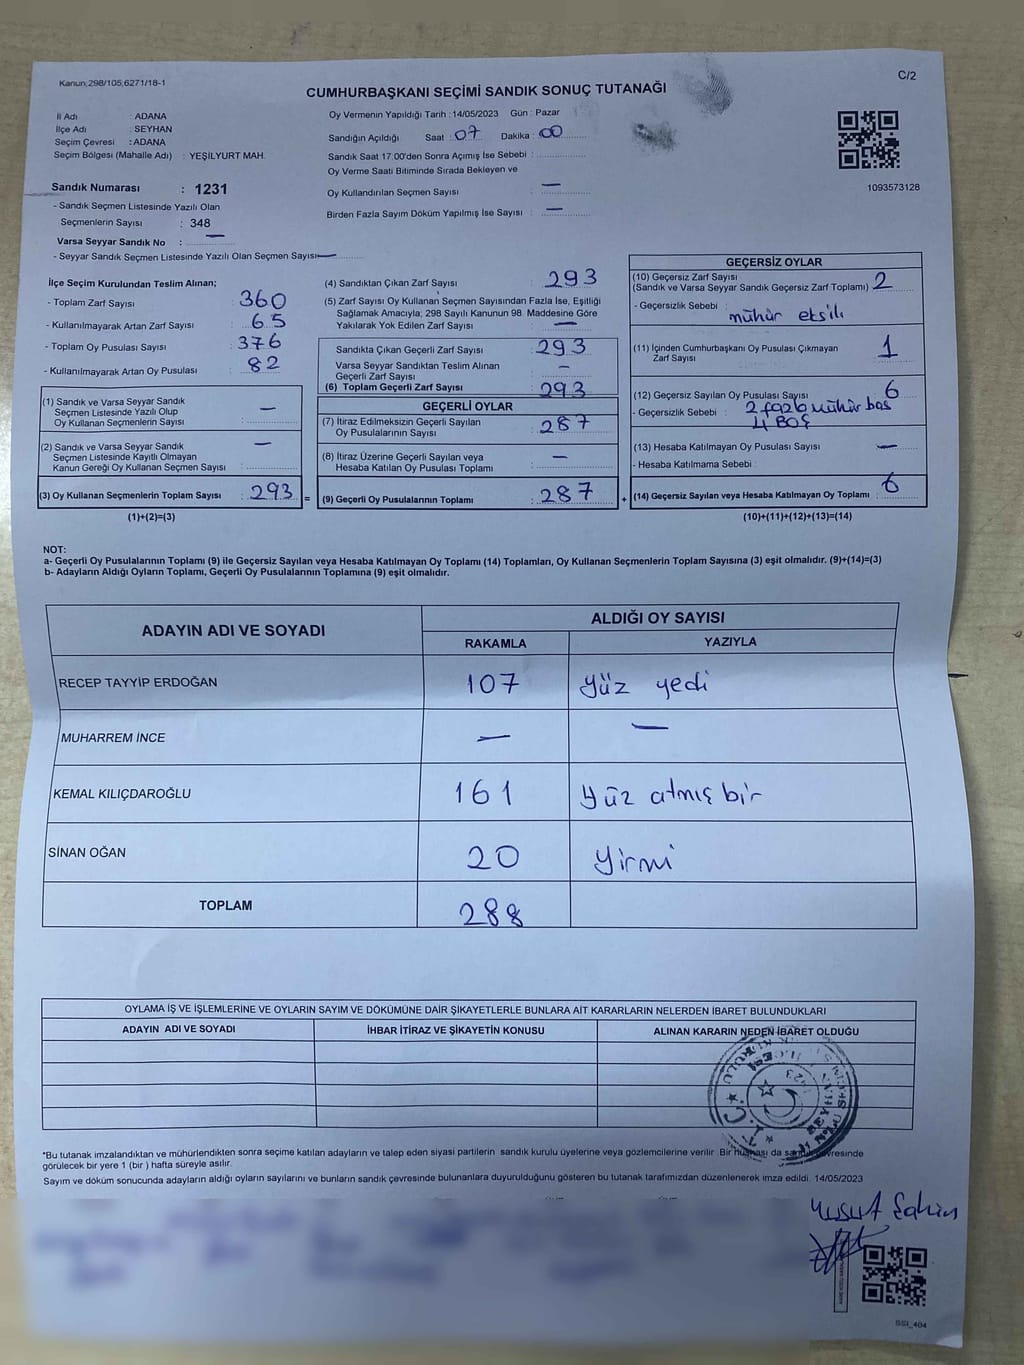 Kanun;298/105;6271/18-1
C/2
CUMHURBAŞKANI SEÇİMİ SANDIK SONUÇ TUTANAĞI
İl Adı : ADANA
İlçe Adı : SEYHAN
Seçim Çevresi : ADANA
Seçim Bölgesi (Mahalle Adı) : YEŞİLYURT MAH.
Sandık Numarası : 1231
- Sandık Seçmen Listesinde Yazılı Olan
Seçmenlerin Sayısı : 348
Varsa Seyyar Sandık No : —
- Seyyar Sandık Seçmen Listesinde Yazılı Olan Seçmen Sayısı: —
Oy Vermenin Yapıldığı Tarih : 14/05/2023 Gün : Pazar
Sandığın Açıldığı Saat : 07 Dakika : 00
Sandık Saat 17:00'den Sonra Açımış İse Sebebi :
Oy Verme Saati Bitiminde Sırada Bekleyen ve
Oy Kullandırılan Seçmen Sayısı : —
Birden Fazla Sayım Döküm Yapılmış İse Sayısı : —
1093573128
İlçe Seçim Kurulundan Teslim Alınan;
- Toplam Zarf Sayısı : 360
- Kullanılmayarak Artan Zarf Sayısı : 65
- Toplam Oy Pusulası Sayısı : 376
- Kullanılmayarak Artan Oy Pusulası : 82
(1) Sandık ve Varsa Seyyar Sandık
Seçmen Listesinde Yazılı Olup
Oy Kullanan Seçmenlerin Sayısı : —
(2) Sandık ve Varsa Seyyar Sandık
Seçmen Listesinde Kayıtlı Olmayan
Kanun Gereği Oy Kullanan Seçmen Sayısı : —
(3) Oy Kullanan Seçmenlerin Toplam Sayısı : 293 =
(1)+(2)=(3)
(4) Sandıktan Çıkan Zarf Sayısı : 293
(5) Zarf Sayısı Oy Kullanan Seçmen Sayısından Fazla İse, Eşitliği
Sağlamak Amacıyla; 298 Sayılı Kanunun 98. Maddesine Göre
Yakılarak Yok Edilen Zarf Sayısı : —
Sandıkta Çıkan Geçerli Zarf Sayısı : 293
Varsa Seyyar Sandıktan Teslim Alınan
Geçerli Zarf Sayısı : —
(6) Toplam Geçerli Zarf Sayısı : 293
GEÇERLİ OYLAR
(7) İtiraz Edilmeksizin Geçerli Sayılan
Oy Pusulalarının Sayısı : 287
(8) İtiraz Üzerine Geçerli Sayılan veya
Hesaba Katılan Oy Pusulası Toplamı : —
(9) Geçerli Oy Pusulalarının Toplamı : 287 +
GEÇERSİZ OYLAR
(10) Geçersiz Zarf Sayısı
(Sandık ve Varsa Seyyar Sandık Geçersiz Zarf Toplamı) : 2
- Geçersizlik Sebebi : mühür eksili
(11) İçinden Cumhurbaşkanı Oy Pusulası Çıkmayan
Zarf Sayısı : 1
(12) Geçersiz Sayılan Oy Pusulası Sayısı : 6
- Geçersizlik Sebebi : 2 fazla mühür bas
4 BOŞ
(13) Hesaba Katılmayan Oy Pusulası Sayısı : —
- Hesaba Katılmama Sebebi :
(14) Geçersiz Sayılan veya Hesaba Katılmayan Oy Toplamı : 6
(10)+(11)+(12)+(13)=(14)
NOT:
a- Geçerli Oy Pusulalarının Toplamı (9) ile Geçersiz Sayılan veya Hesaba Katılmayan Oy Toplamı (14) Toplamları, Oy Kullanan Seçmenlerin Toplam Sayısına (3) eşit olmalıdır. (9)+(14)=(3)
b- Adayların Aldığı Oyların Toplamı, Geçerli Oy Pusulalarının Toplamına (9) eşit olmalıdır.
ADAYIN ADI VE SOYADI
ALDIĞI OY SAYISI
RAKAMLA YAZIYLA
RECEP TAYYİP ERDOĞAN 107 yüz yedi
MUHARREM İNCE — —
KEMAL KILIÇDAROĞLU 161 yüz atmış bir
SİNAN OĞAN 20 yirmi
TOPLAM 288
OYLAMA İŞ VE İŞLEMLERİNE VE OYLARIN SAYIM VE DÖKÜMÜNE DAİR ŞİKAYETLERLE BUNLARA AİT KARARLARIN NELERDEN İBARET BULUNDUKLARI
ADAYIN ADI VE SOYADI İHBAR İTİRAZ VE ŞİKAYETİN KONUSU ALINAN KARARIN NEDEN İBARET OLDUĞU
T.C.
SEYHAN
*Bu tutanak imzalandıktan ve mühürlendikten sonra seçime katılan adayların ve talep eden siyasi partilerin sandık kurulu üyelerine veya gözlemcilerine verilir. Bir nüshası da sandık çevresinde
görülecek bir yere 1 (bir ) hafta süreyle asılır.
Sayım ve döküm sonucunda adayların aldığı oyların sayılarını ve bunların sandık çevresinde bulunanlara duyurulduğunu gösteren bu tutanak tarafımızdan düzenlenerek imza edildi. 14/05/2023
Yusuf Şahin
SSI_404